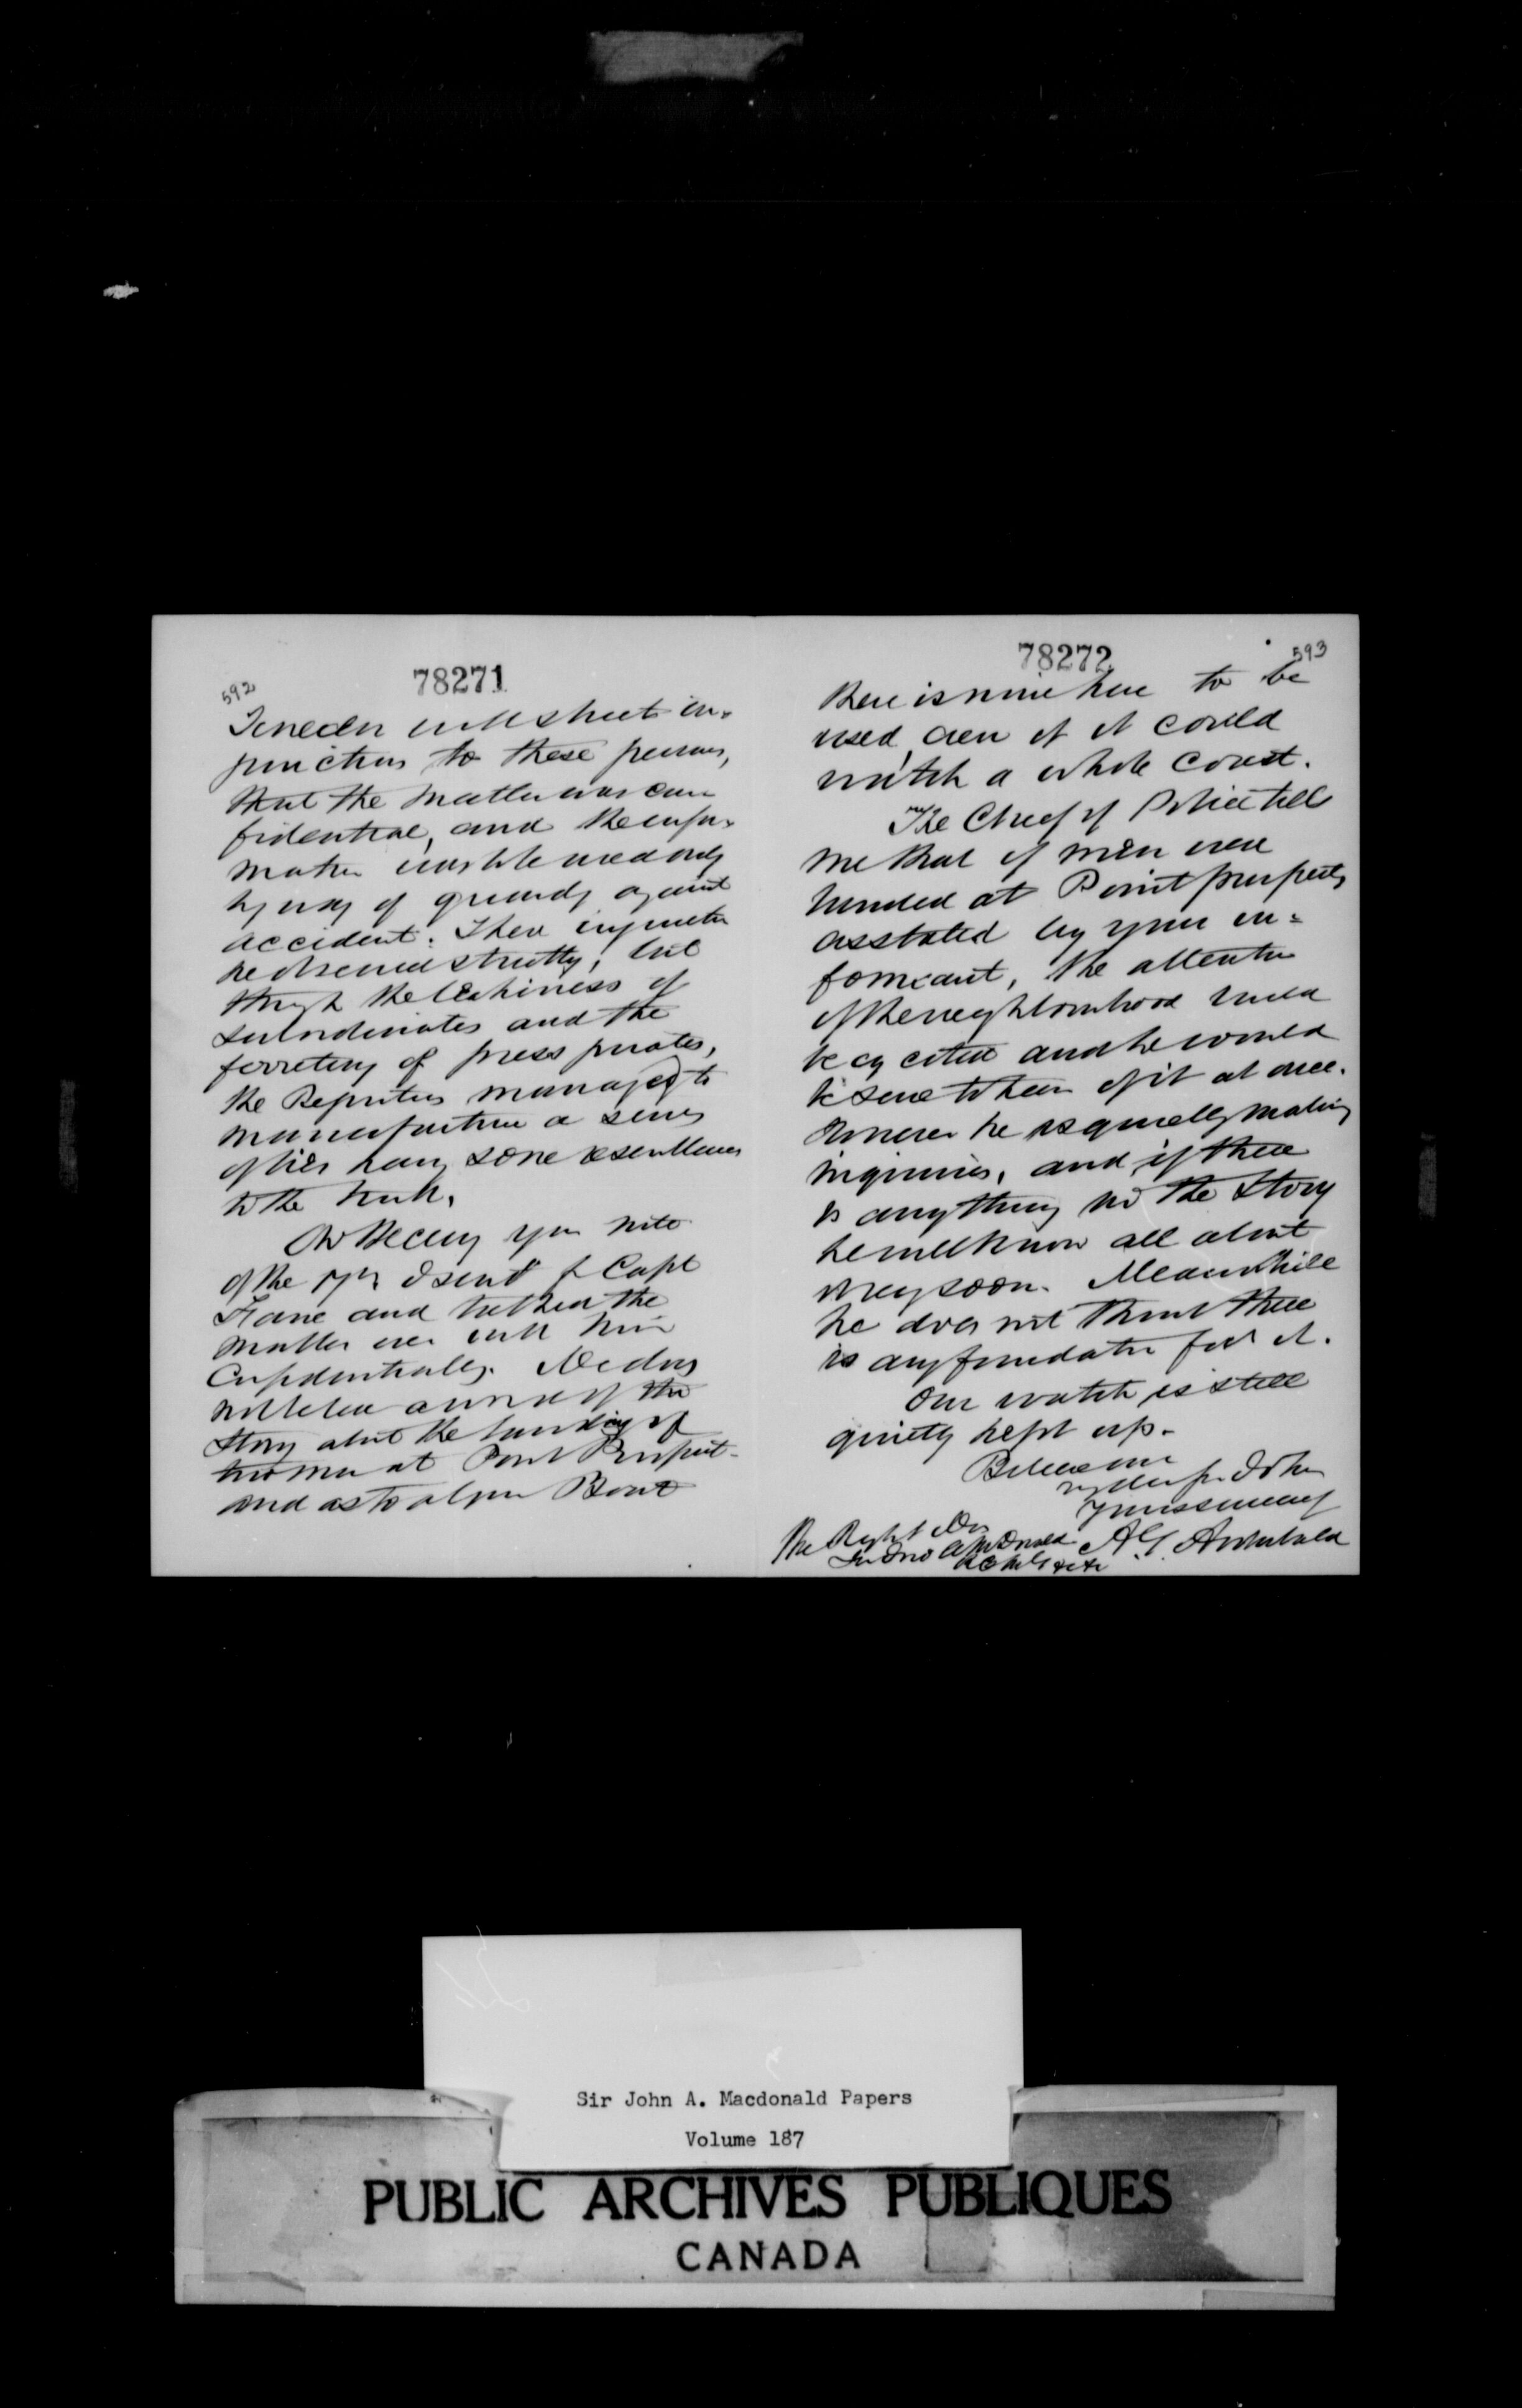 592
78271
strict in-
junctions to these persons,
that the matter was con
fidential, and the infor-
mation was to be used only
by way of guard against
accident. Their injunction
he observed strictly, but
through the leakiness of
subordinates and the
ferreting of press pirates,
the Reporters managed to
manufacture a series
of lies having some resemblance
to the truth.
On receiving your note
of the 17th I sent for Capt
and talked the
matter over with him
Confidentially. He does
not believe a word of the
Story about the landing of
two men at Point Prospect
and as to a Boat
78272
593
there is none here to be
used even if it could
watch a whole coast.
The Chief of Police tells
me that if men were
landed at Point prospect,
as stated by your in=
formant, the attention
of the neighbourhood would
be excited and he would
be sure to hear of it at once.
However he is quietly making
inquiries, and if there
is anything in the Story
he will know all about
it very soon. Meanwhile
he does not think there
is any foundation for it.
Our watch is still
quietly kept up.
Believe me
my dear Sir John
Yours sincerely
A. G. Archibald
The Right Hon
Sir Jno A McDonald
Sir John A. Macdonald Papers
Volume 187
PUBLIC ARCHIVES PUBLIQUES
CANADA